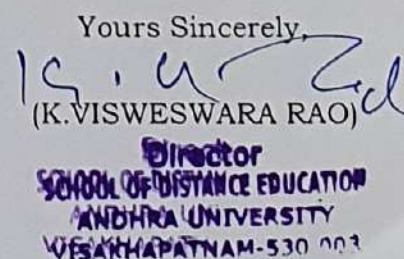 Yours Sincerely,
(K.VISWESWARA RAO)
Director
SCHOOL OF DISTANCE EDUCATION
ANDHRA UNIVERSITY
VISAKHAPATNAM-530 003